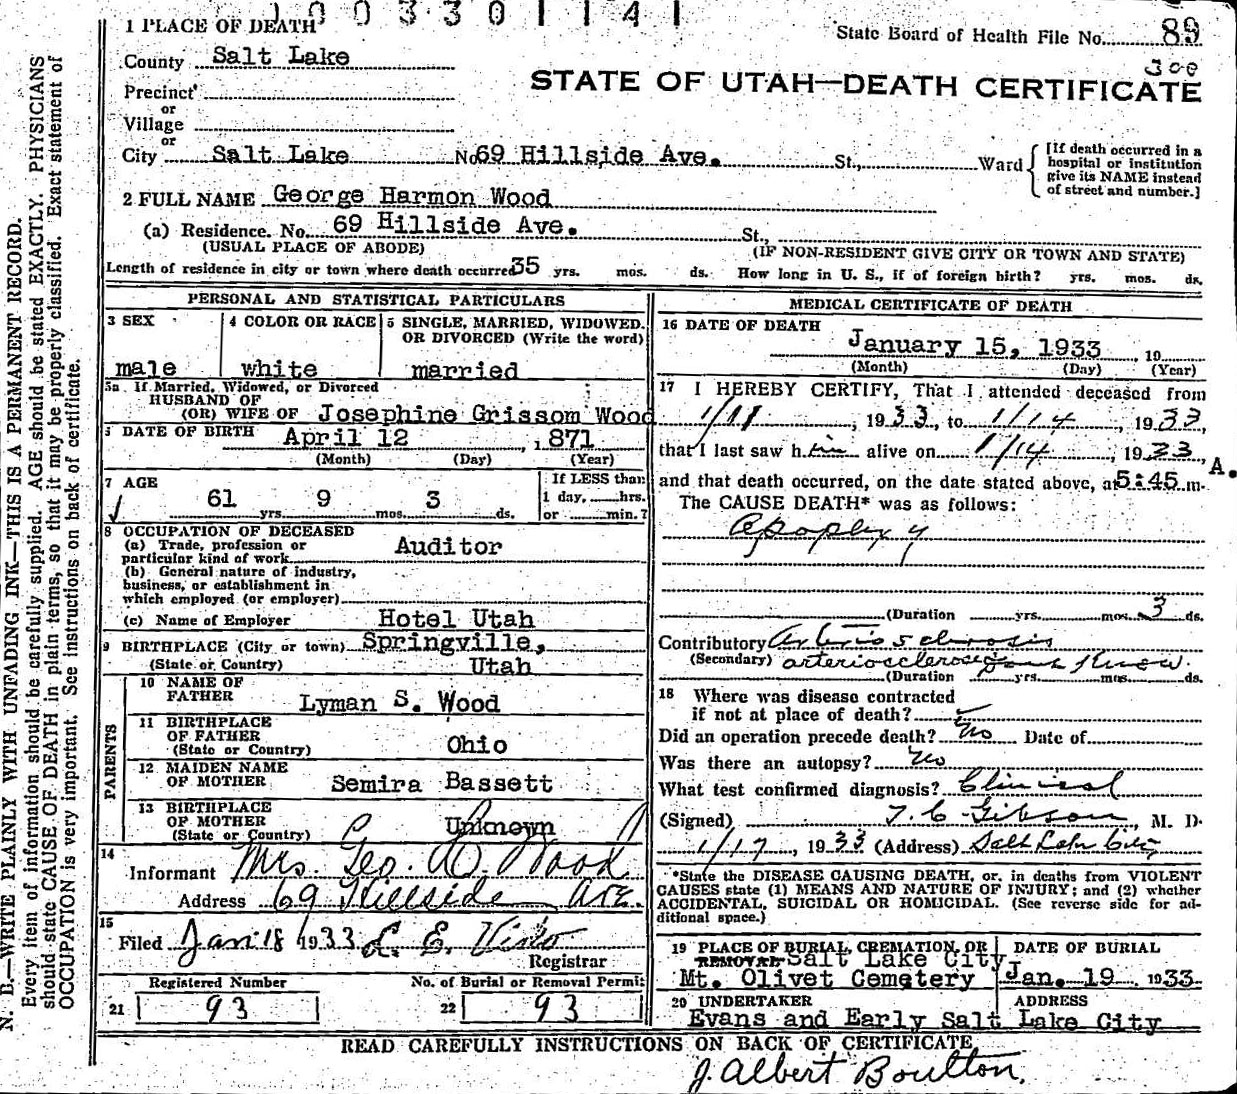 1003301141
1 PLACE OF DEATH
State Board of Health File No. 89
300
County Salt Lake
STATE OF UTAH—DEATH CERTIFICATE
Precinct
or
Village
or
City Salt Lake No 69 Hillside Ave. St., Ward
[If death occurred in a
hospital or institution
give its NAME instead
of street and number.]
2 FULL NAME George Harmon Wood
(a) Residence. No. 69 Hillside Ave. St.,
(USUAL PLACE OF ABODE) (IF NON-RESIDENT GIVE CITY OR TOWN AND STATE)
Length of residence in city or town where death occurred 35 yrs. mos. ds. How long in U. S., if of foreign birth? yrs. mos. ds.
PERSONAL AND STATISTICAL PARTICULARS
3 SEX
male
4 COLOR OR RACE
white
5 SINGLE, MARRIED, WIDOWED,
OR DIVORCED (Write the word)
married
5a If Married, Widowed, or Divorced
HUSBAND OF
(OR) WIFE OF Josephine Grissom Wood
DATE OF BIRTH April 12, 1871
(Month) (Day) (Year)
7 AGE
61 yrs. 9 mos. 3 ds.
If LESS than
1 day, hrs.
or min.?
8 OCCUPATION OF DECEASED
(a) Trade, profession or
particular kind of work Auditor
(b) General nature of industry,
business, or establishment in
which employed (or employer)
(c) Name of Employer Hotel Utah
9 BIRTHPLACE (City or town) Springville,
(State or Country) Utah
PARENTS
10 NAME OF
FATHER Lyman S. Wood
11 BIRTHPLACE
OF FATHER
(State or Country) Ohio
12 MAIDEN NAME
OF MOTHER Semira Bassett
13 BIRTHPLACE
OF MOTHER
(State or Country) Unknown
14
Informant Mrs. Geo. Wood
Address 69 Hillside Ave.
15
Filed Jan 18 1933
Registrar
Registered Number
21 93
No. of Burial or Removal Permit
22 93
MEDICAL CERTIFICATE OF DEATH
16 DATE OF DEATH
January 15, 1933, 19
(Month) (Day) (Year)
17 I HEREBY CERTIFY, That I attended deceased from
1/11, 1933, to 1/14, 1933,
that I last saw him alive on 1/14, 1933,
and that death occurred, on the date stated above, at 5:45 A.m.
The CAUSE DEATH* was as follows:
Apoplexy
(Duration yrs. mos. 3 ds.
Contributory Arterio sclerosis
(Secondary) arteriosclerosis
(Duration yrs. mos. ds.
18 Where was disease contracted
if not at place of death?
Did an operation precede death? No Date of
Was there an autopsy? No
What test confirmed diagnosis? Clinical
(Signed) T. C. Gibson, M. D.
1/17, 1933 (Address) Salt Lake City
*State the DISEASE CAUSING DEATH, or, in deaths from VIOLENT
CAUSES state (1) MEANS AND NATURE OF INJURY; and (2) whether
ACCIDENTAL, SUICIDAL OR HOMICIDAL. (See reverse side for ad-
ditional space.)
19 PLACE OF BURIAL, CREMATION, OR
REMOVAL Salt Lake City
Mt. Olivet Cemetery
DATE OF BURIAL
Jan. 19 1933
20 UNDERTAKER
Evans and Early
ADDRESS
Salt Lake City
READ CAREFULLY INSTRUCTIONS ON BACK OF CERTIFICATE
J. Albert Boulton.
N. B.—WRITE PLAINLY WITH UNFADING INK—THIS IS A PERMANENT RECORD.
Every item of information should be carefully supplied. AGE should be stated EXACTLY. PHYSICIANS
should state CAUSE OF DEATH in plain terms, so that it may be properly classified. Exact statement of
OCCUPATION is very important. See instructions on back of certificate.